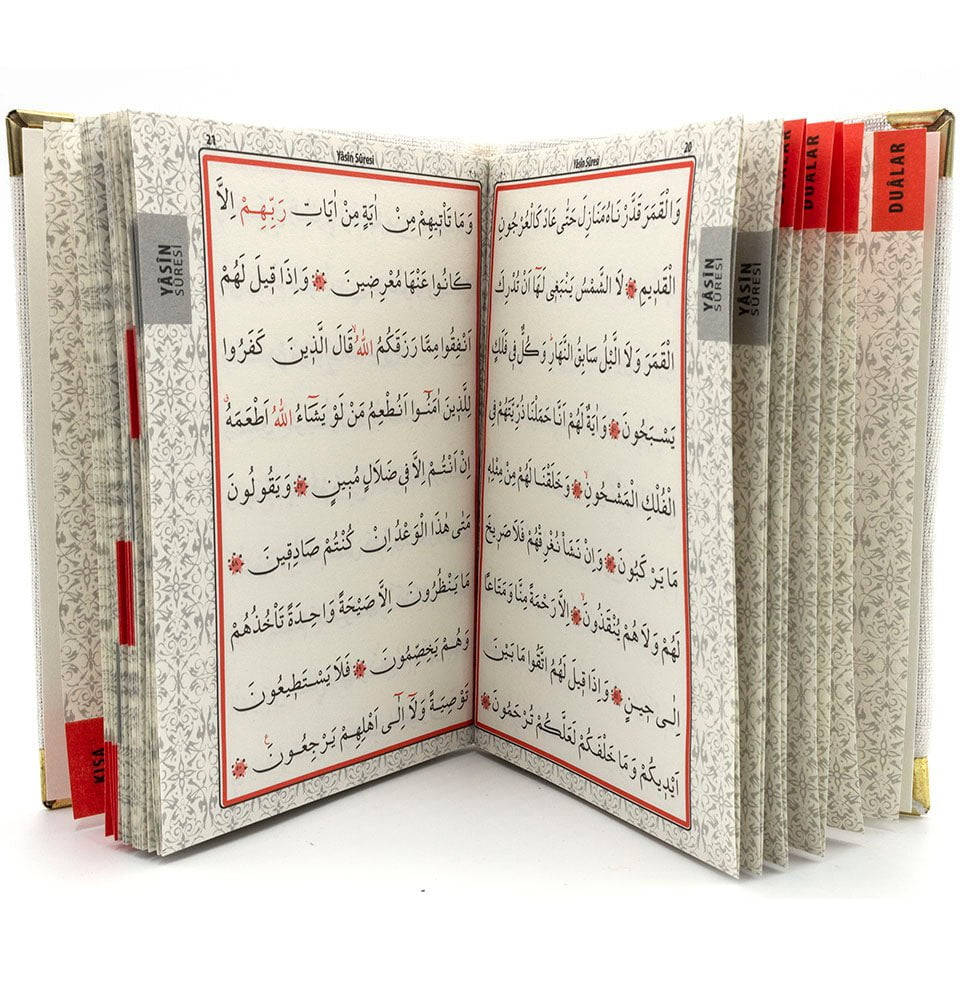 20
Yâsîn Sûresi
وَالْقَمَرَ قَدَّرْنَاهُ مَنَازِلَ حَتّٰى عَادَ كَالْعُرْجُونِ
الْقَد۪يمِ لَا الشَّمْسُ يَنْبَغ۪ي لَهَٓا اَنْ تُدْرِكَ
الْقَمَرَ وَلَا الَّيْلُ سَابِقُ النَّهَارِۜ وَكُلٌّ ف۪ي فَلَكٍ
يَسْبَحُونَ وَاٰيَةٌ لَهُمْ اَنَّا حَمَلْنَا ذُرِّيَّتَهُمْ فِي
الْفُلْكِ الْمَشْحُونِۙ وَخَلَقْنَا لَهُمْ مِنْ مِثْلِه۪
مَا يَرْكَبُونَ وَاِنْ نَشَأْ نُغْرِقْهُمْ فَلَا صَر۪يخَ
لَهُمْ وَلَا هُمْ يُنْقَذُونَۙ اِلَّا رَحْمَةً مِنَّا وَمَتَاعًا
اِلٰى ح۪ينٍ وَاِذَا ق۪يلَ لَهُمُ اتَّقُوا مَا بَيْنَ
اَيْد۪يكُمْ وَمَا خَلْفَكُمْ لَعَلَّكُمْ تُرْحَمُونَ
21
Yâsîn Sûresi
وَمَا تَأْت۪يهِمْ مِنْ اٰيَةٍ مِنْ اٰيَاتِ رَبِّهِمْ اِلَّا
كَانُوا عَنْهَا مُعْرِض۪ينَ وَاِذَا ق۪يلَ لَهُمْ
اَنْفِقُوا مِمَّا رَزَقَكُمُ اللّٰهُۙ قَالَ الَّذ۪ينَ كَفَرُوا
لِلَّذ۪ينَ اٰمَنُٓوا اَنُطْعِمُ مَنْ لَوْ يَشَٓاءُ اللّٰهُ اَطْعَمَهُۗ
اِنْ اَنْتُمْ اِلَّا ف۪ي ضَلَالٍ مُب۪ينٍ وَيَقُولُونَ
مَتٰى هٰذَا الْوَعْدُ اِنْ كُنْتُمْ صَادِق۪ينَ
مَا يَنْظُرُونَ اِلَّا صَيْحَةً وَاحِدَةً تَأْخُذُهُمْ
وَهُمْ يَخِصِّمُونَ فَلَا يَسْتَط۪يعُونَ
تَوْصِيَةً وَلَٓا اِلٰٓى اَهْلِهِمْ يَرْجِعُونَ۟
YÂSÎN
SÛRESİ
YÂSÎN
SÛRESİ
YÂSÎN
SÛRESİ
DUÂLAR
DUÂLAR
KISA